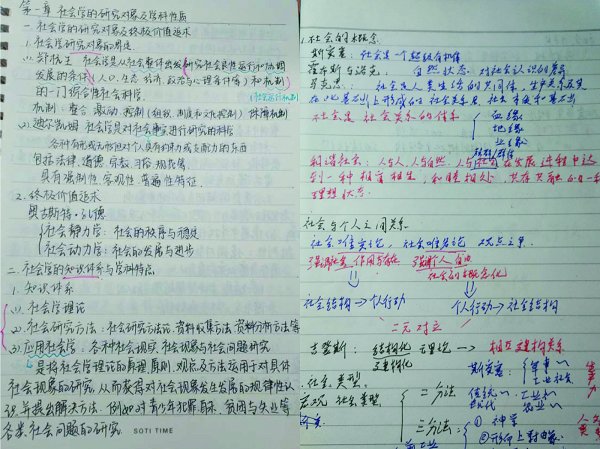 第一章 社会学的研究对象及学科性质
一.社会学的研究对象及终极价值追求
1.社会学研究对象的界定
(1).郑杭生 社会学是从社会整体出发研究社会良性运行和协调
发展的条件(人口、生态、经济、政治与心理条件等)和机制
的一门综合性社会科学.
(社会运行机制)
机制:整合 激励 控制(组织、制度和文化控制) 保障机制
(2).迪尔凯姆 社会学是对社会事实进行研究的科学
包括法律、道德、宗教、习俗、规范等
具有强制性、客观性、普遍性特征.
2.终极价值追求
奥古斯特·孔德
社会静力学:社会的秩序与稳定
社会动力学:社会的发展与进步
二.社会学的知识体系与学科特点
1.知识体系
(1).社会学理论
(2).社会研究方法:社会研究方法论、资料收集方法、资料分析方法等
(3).应用社会学:各种社会现实、社会现象与社会问题研究
是将社会学理论的原理、原则、观点及方法运用于对具体
社会现象的研究,从而获得对社会现象发生发展的规律性认
识,并提出解决方法.例如对青少年犯罪、自杀、贫困与失业等
各类社会问题的研究.
SOTI TIME
1.社会的概念
斯宾塞:社会是一个超级有机体
霍布斯与洛克: 自然状态、对社会认识的差异
马克思:社会是人类生活的共同体,生产关系及
在此基础上形成的社会关系是社会本质和基础
社会是社会关系的体系
血缘
地缘
业缘
和谐社会:人与人、人与自然、人与社会在发展过程中达
到一种相育相生,和睦相处,共存共融的
理想状态.
社会与个人之间关系
社会唯实论,社会唯名论 观点之争
强调社会作用与存在 强调个人自由
社会的概念化
社会结构→个人行动 个人行动→社会结构
二元对立
吉登斯:结构化理论→相互建构关系
社会类型
宏观社会类型
二分法
斯宾塞:军事~
工业社会
传统~ 工业~
现代 农业~
三分法:
①神学
②形而上对曲象